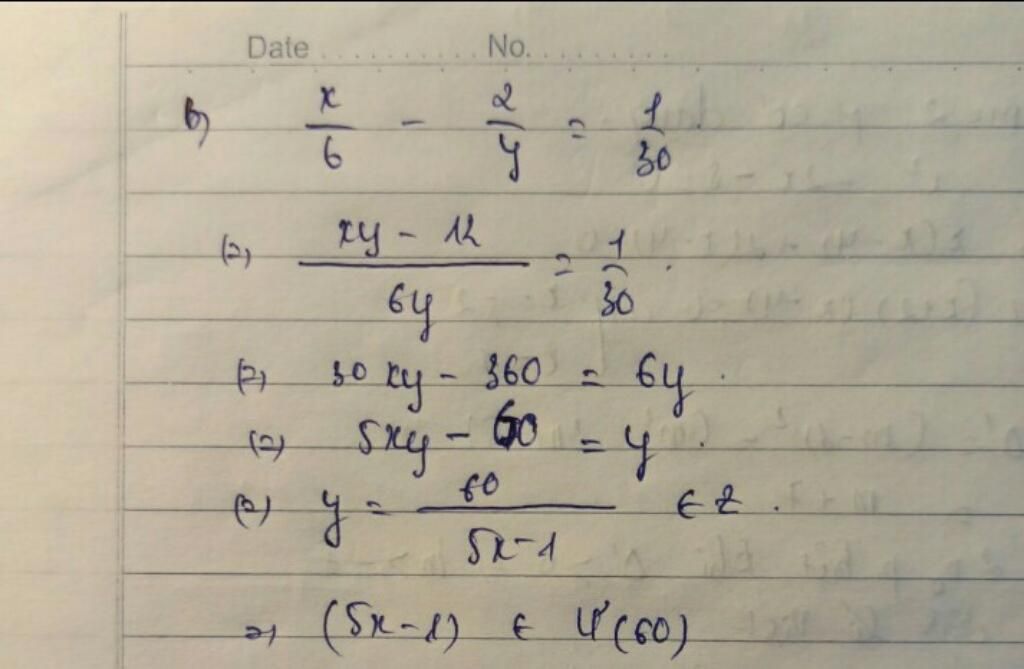 Date .......... No. ..........
b) x/6 - 2/y = 1/30
(=) (xy - 12)/6y = 1/30.
(=) 30xy - 360 = 6y.
(=) 5xy - 60 = y.
(=) y = 60/(5x-1) ∈ Z.
=) (5x-1) ∈ Ư(60)